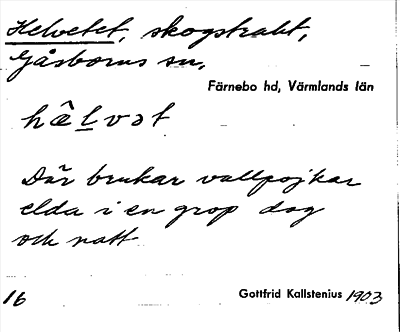 Helvetet, skogstrakt,
Gåsborns sn,
Färnebo hd, Värmlands län
hä̂lvət
Där brukar vallpojkar
elda i en grop dag
och natt
16
Gottfrid Kallstenius 1903